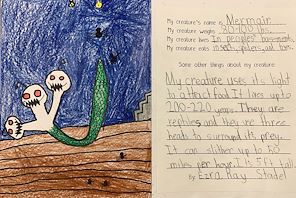 My creature's name is Mermair
My creature weighs 80-100 lbs.
My creature lives In peoples basement.
My creature eats insects, spiders, and toes.
Some other things about my creature:
My creature uses its light
to attract food. It lives up to
200-220 years. They are
reptiles and they use three
heads to surround its prey.
It can slither up to 50
miles per hour. I is 5ft tall
By: Ezra Kay Stadel